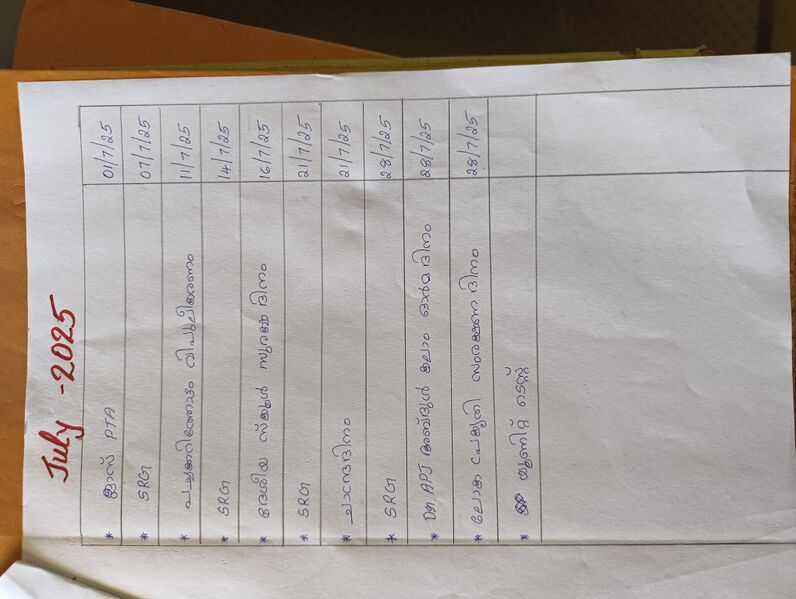 July - 2025
* ക്ലാസ് PTA 01/7/25
* SRG 07/7/25
* പച്ചക്കറിത്തോട്ടം വിപുലീകരണം 11/7/25
* SRG 14/7/25
* ദേശീയ സ്കൂൾ സുരക്ഷ ദിനം 16/7/25
* SRG 21/7/25
* ചാന്ദ്രദിനം 21/7/25
* SRG 28/7/25
* Dr APJ അബ്ദുൾ കലാം ഓർമ ദിനം 28/7/25
* ലോക പ്രകൃതി സംരക്ഷണ ദിനം 28/7/25
* യൂണിറ്റ് ടെസ്റ്റ്